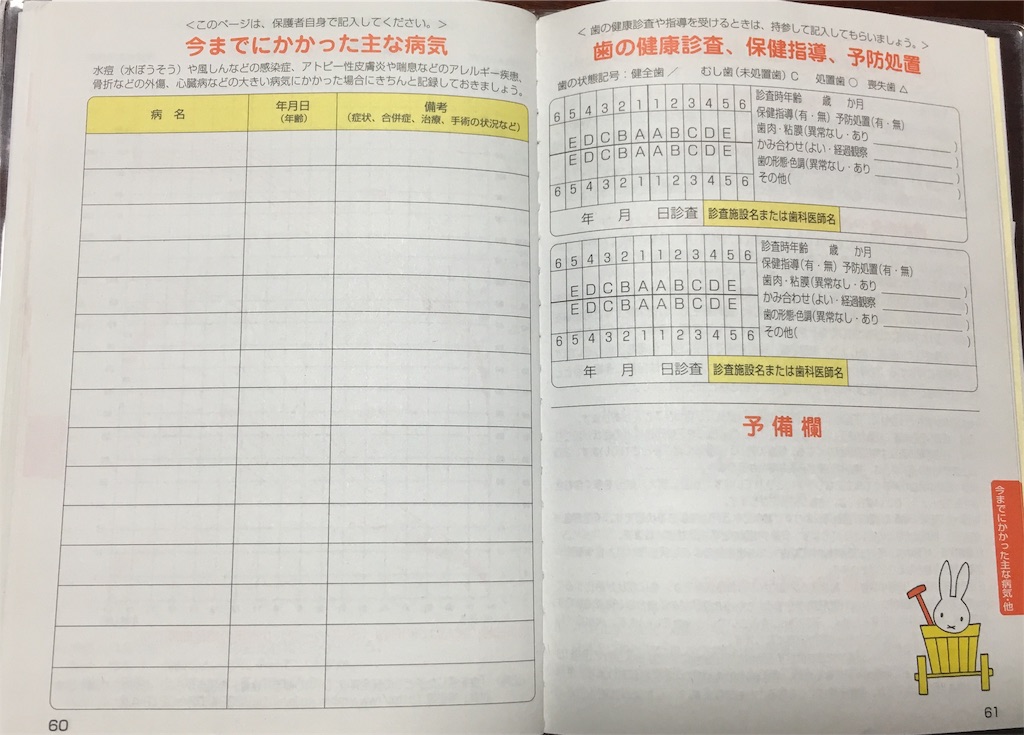 <このページは、保護者自身で記入してください。>
今までにかかった主な病気
水痘(水ぼうそう)や風しんなどの感染症、アトピー性皮膚炎や喘息などのアレルギー疾患、
骨折などの外傷、心臓病などの大きい病気にかかった場合にきちんと記録しておきましょう。
病 名
年月日
(年齢)
備考
(症状、合併症、治療、手術の状況など)
60
<歯の健康診査や指導を受けるときは、持参して記入してもらいましょう。>
歯の健康診査、保健指導、予防処置
歯の状態記号:健全歯/ むし歯(未処置歯)C 処置歯○ 喪失歯△
6 5 4 3 2 1 1 2 3 4 5 6
E D C B A A B C D E
E D C B A A B C D E
6 5 4 3 2 1 1 2 3 4 5 6
診査時年齢 歳 か月
保健指導(有・無) 予防処置(有・無)
歯肉・粘膜(異常なし・あり )
かみ合わせ(よい・経過観察 )
歯の形態・色調(異常なし・あり )
その他( )
年 月 日診査 診査施設名または歯科医師名
6 5 4 3 2 1 1 2 3 4 5 6
E D C B A A B C D E
E D C B A A B C D E
6 5 4 3 2 1 1 2 3 4 5 6
診査時年齢 歳 か月
保健指導(有・無) 予防処置(有・無)
歯肉・粘膜(異常なし・あり )
かみ合わせ(よい・経過観察 )
歯の形態・色調(異常なし・あり )
その他( )
年 月 日診査 診査施設名または歯科医師名
予備欄
今までにかかった主な病気・他
61